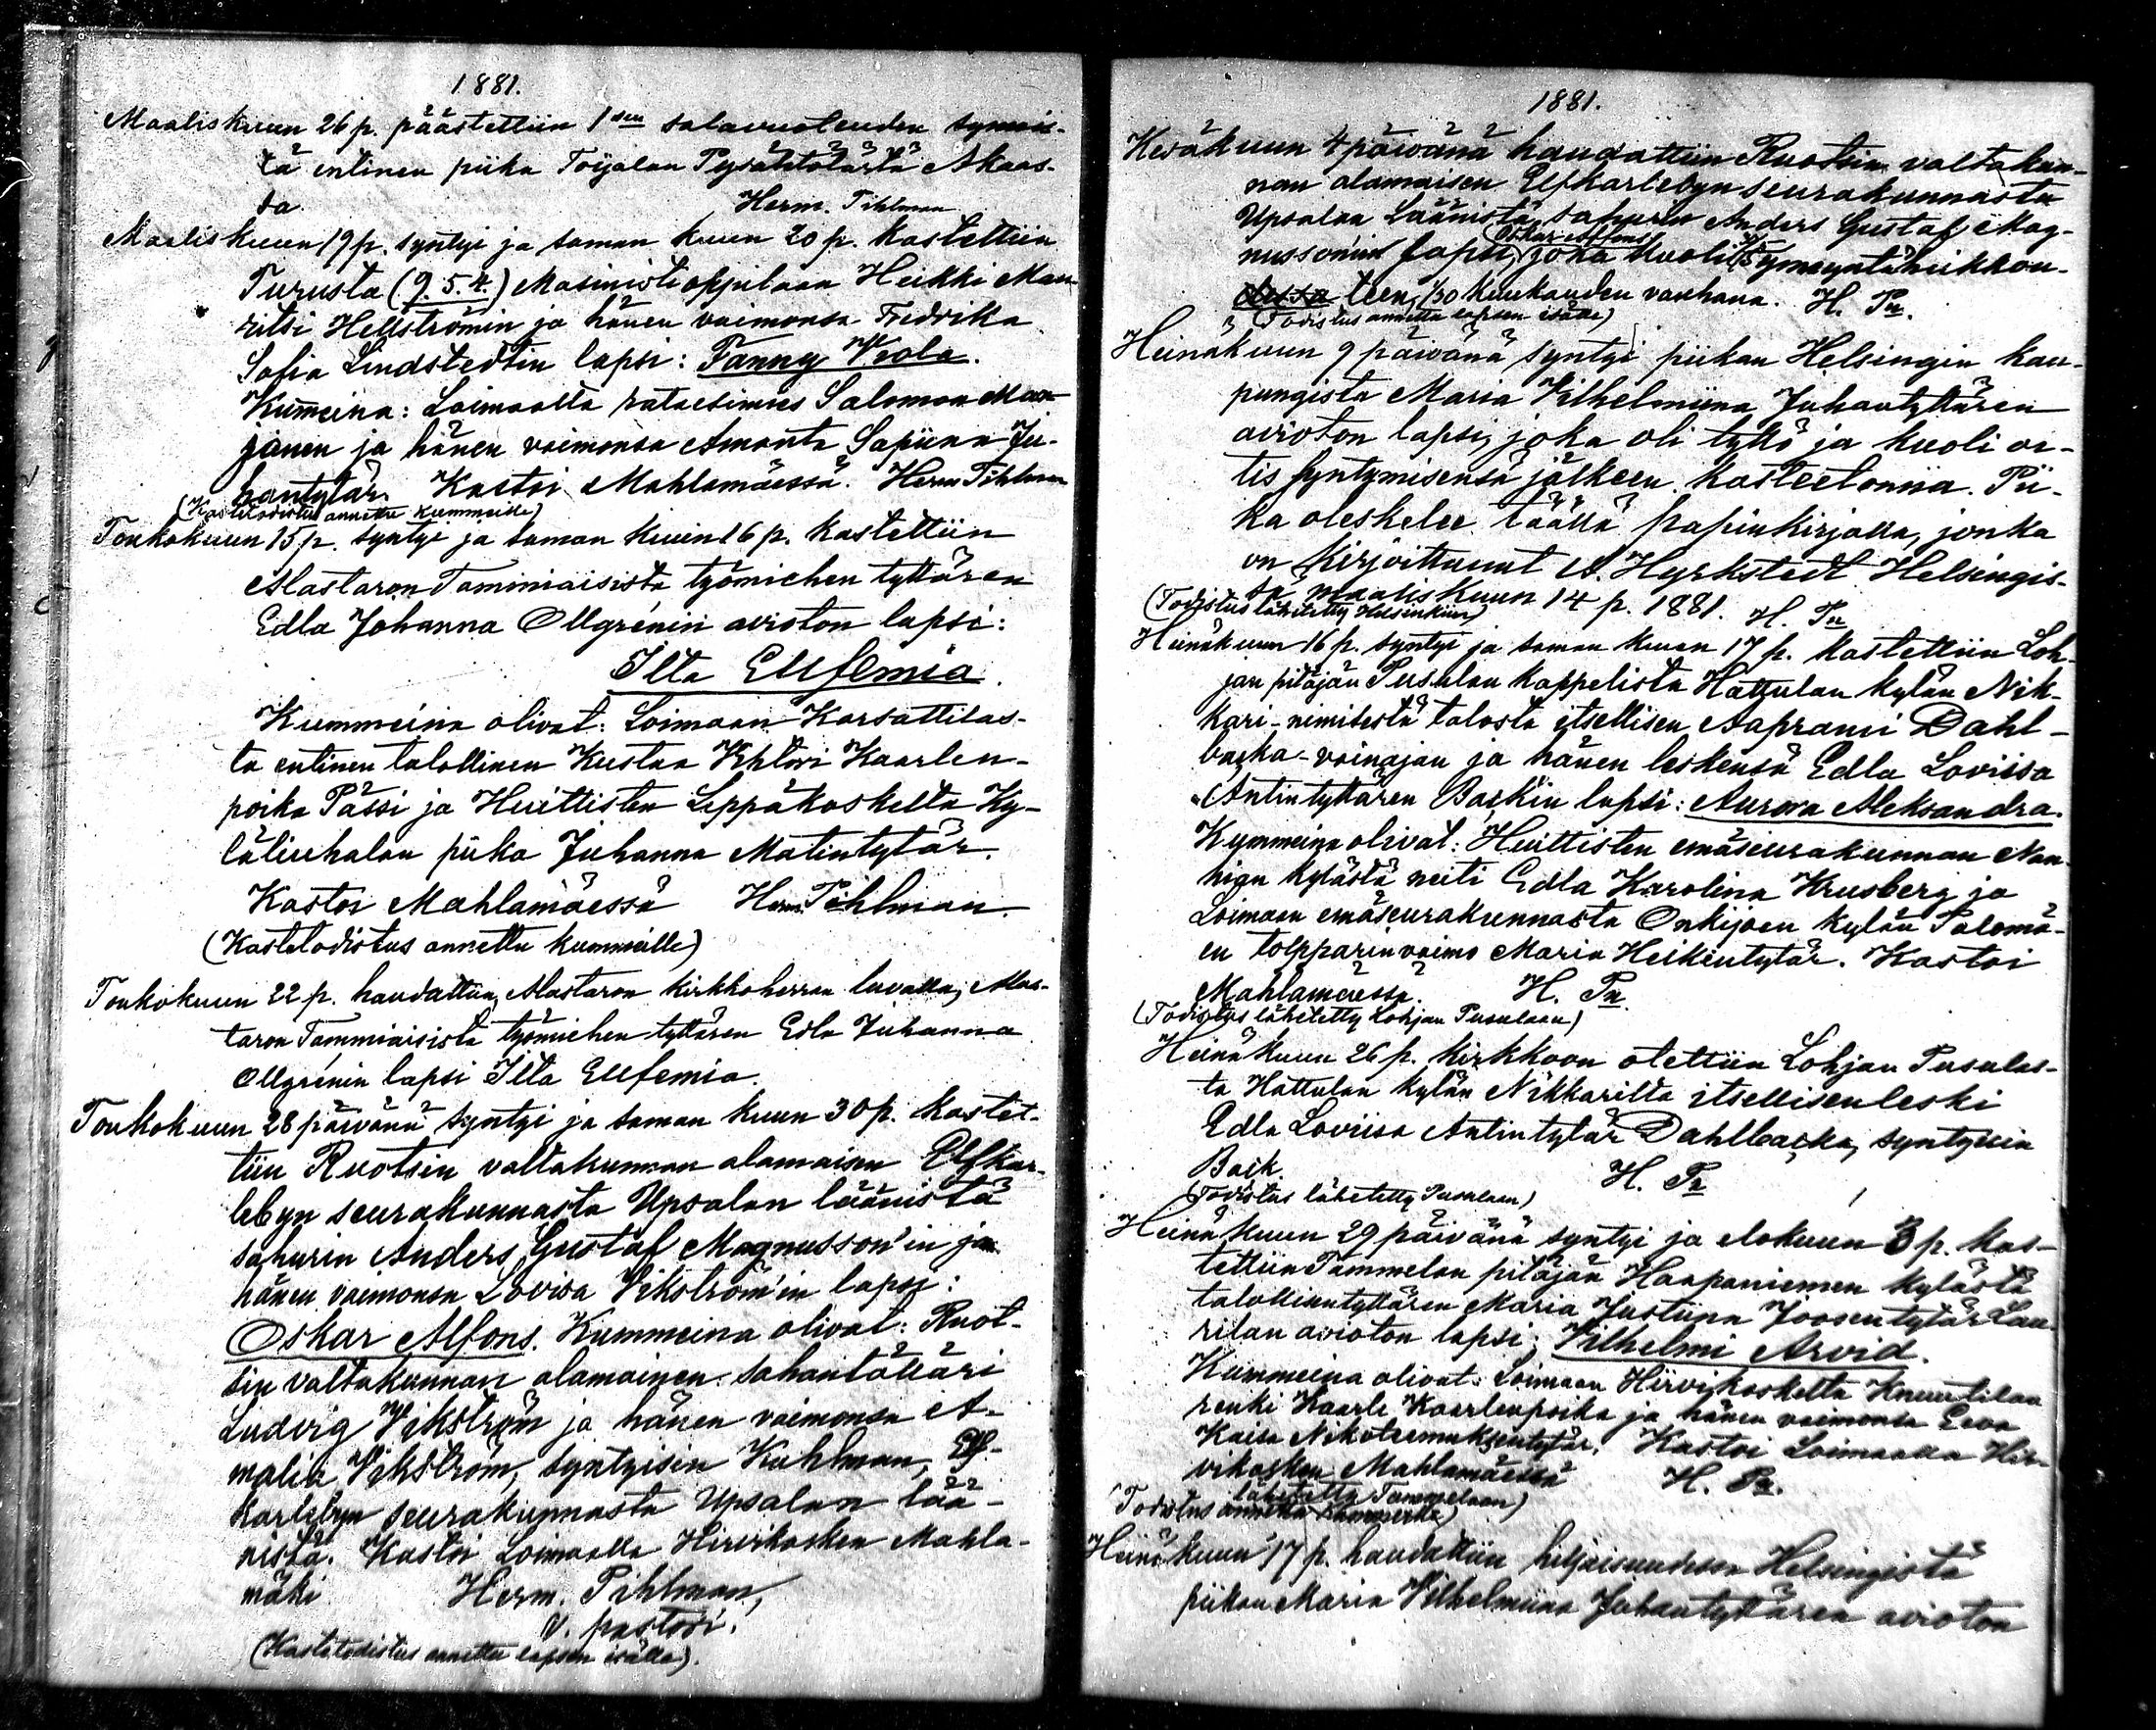 1881.
Maaliskuun 26 p. päästettiin 1sen salavuoteuden synnis-
tä entinen piika Toijalan Pysähtölästä Akaas-
sa. Herm. Pihlman
Maaliskuun 19 p. syntyi ja saman kuun 20 p. kastettiin
Turusta (9. 5. 4.) Masinistioppilaan Heikki Mau-
ritsi Hellströmin ja hänen vaimonsa Fredrika
Sofia Lindstedtin lapsi: Fanny Viola.
Kummeina: Loimaalta rataesimies Salomon
ja hänen vaimonsa Amanta Sapiina Ju-
hantytär. Kastoi Mahlamäessä. Herm Pihlman
(Kastetodistus annettu kummeille)
Toukokuun 15 p. syntyi ja saman kuun 16 p. kastettiin
Alastaron Tammiaisista työmiehen tyttären
Edla Johanna Ollgrénin avioton lapsi:
Ilta Eufemia.
Kummeina olivat: Loimaan Karsattilas-
ta entinen talollinen Kustaa Vihtori Kaarlen-
poika Pässi ja Huittisten Leppäkoskelta Ky-
läliuhalan piika Juhanna Matintytär.
Kastoi Mahlamäessä Herm. Pihlman.
(Kastetodistus annettu kummeille)
Toukokuun 22 p. haudattiin, Alastaron kirkkoherran luvalla, Alas-
taron Tammiaisista työmiehen tyttären Edla Juhanna
Ollgrénin lapsi Ilta Eufemia.
Toukokuun 28 päivänä syntyi ja saman kuun 30 p. kastet-
tiin Ruotsin valtakunnan alamaisen Elfkar-
lebyn seurakunnasta Upsalan läänistä
sahurin Anders Gustaf Magnusson'in ja
hänen vaimonsa Lovisa Vikström'in lapsi:
Oskar Alfons. Kummeina olivat: Ruot-
sin valtakunnan alamainen sahantölläri
Ludvig Vikström ja hänen vaimonsa A-
malia Vikström, syntyisin Kuhlman, Elf-
karlebyn seurakunnasta Upsalan lää-
nistä. Kastoi Loimaalla Hirvikosken Mahla-
mäki Herm. Pihlman,
v. pastori.
(Kastetodistus annettu lapsen isälle).
1881.
Kesäkuun 4 päivänä haudattiin Ruotsin valtakun-
nan alamaisen Elfkarlebyn seurakunnasta
Upsalan Läänistä sahurin Anders Gustaf Mag-
nussonin lapsi, Oskar Alfons joka kuoli ymmyntäheikkou-
desta teen, 1/30 kuukauden vanhana. H. Pn.
(Todistus annettu lapsen isälle)
Heinäkuun 9 päivänä syntyi piikan Helsingin kau-
pungista Maria Vilhelmiina Juhantyttären
avioton lapsi, joka oli tyttö ja kuoli as-
tis syntymisensä jälkeen kasteetonna. Pii-
ka oleskelee täällä papinkirjalla, jonka
on kirjoittanut A. Hyrkstedt Helsingis-
sä maaliskuun 14 p. 1881. H. Pn
(Todistus lähetetty Helsinkiin)
Heinäkuun 16 p. syntyi ja saman kuun 17 p. kastettiin Loh-
jan pitäjän Pusulan kappelista Hattulan kylän Nik-
kari-nimisestä talosta itsellisen Aaprami Dahl-
backa-vainajan ja hänen leskensä Edla Lovissa
Antintyttären Backin lapsi: Aurora Aleksandra.
Kymmeina olivat: Huittisten emäseurakunnan Nan-
hian kylästä neiti Edla Karolina Krusberg ja
Loimaan emäseurakunnasta Onkijoen kylän Palomä-
en tolpparinvaimo Maria Heikintytär. Kastoi
Mahlamäessä. H. Pn.
(Todistus lähetetty Lohjan Pusulaan)
Heinäkuun 26 p. kirkkoon otettiin Lohjan Pusulas-
ta Hattulan kylän Nikkarilta itsellisen leski
Edla Loviisa Antintytär Dahlbacka, syntyisin
Back. H. Pn
(Todistus lähetetty Pusulaan)
Heinäkuun 29 päivänä syntyi ja elokuun 3 p. kas-
tettiin Tammelan pitäjän Haapaniemen kylästä
talollisentyttären Maria Justiina Joosentytär Lau-
rilan avioton lapsi: Vilhelmi Arvid.
Kummeina olivat: Loimaan Hirvikoskelta Knuutilan
renki Kaarle Kaarlenpoika ja hänen vaimonsa Eeva
Kaisa Nikoteemuksentytär. Kastoi Loimaalla Hir-
vikosken Mahlamäessä H. Pn.
lähetetty Tammelaan)
(Todistus annettu kummeille)
Heinäkuun 17 p. haudattiin hiljaisuudessa Helsingistä
piikan Maria Vilhelmiina Juhantyttären avioton